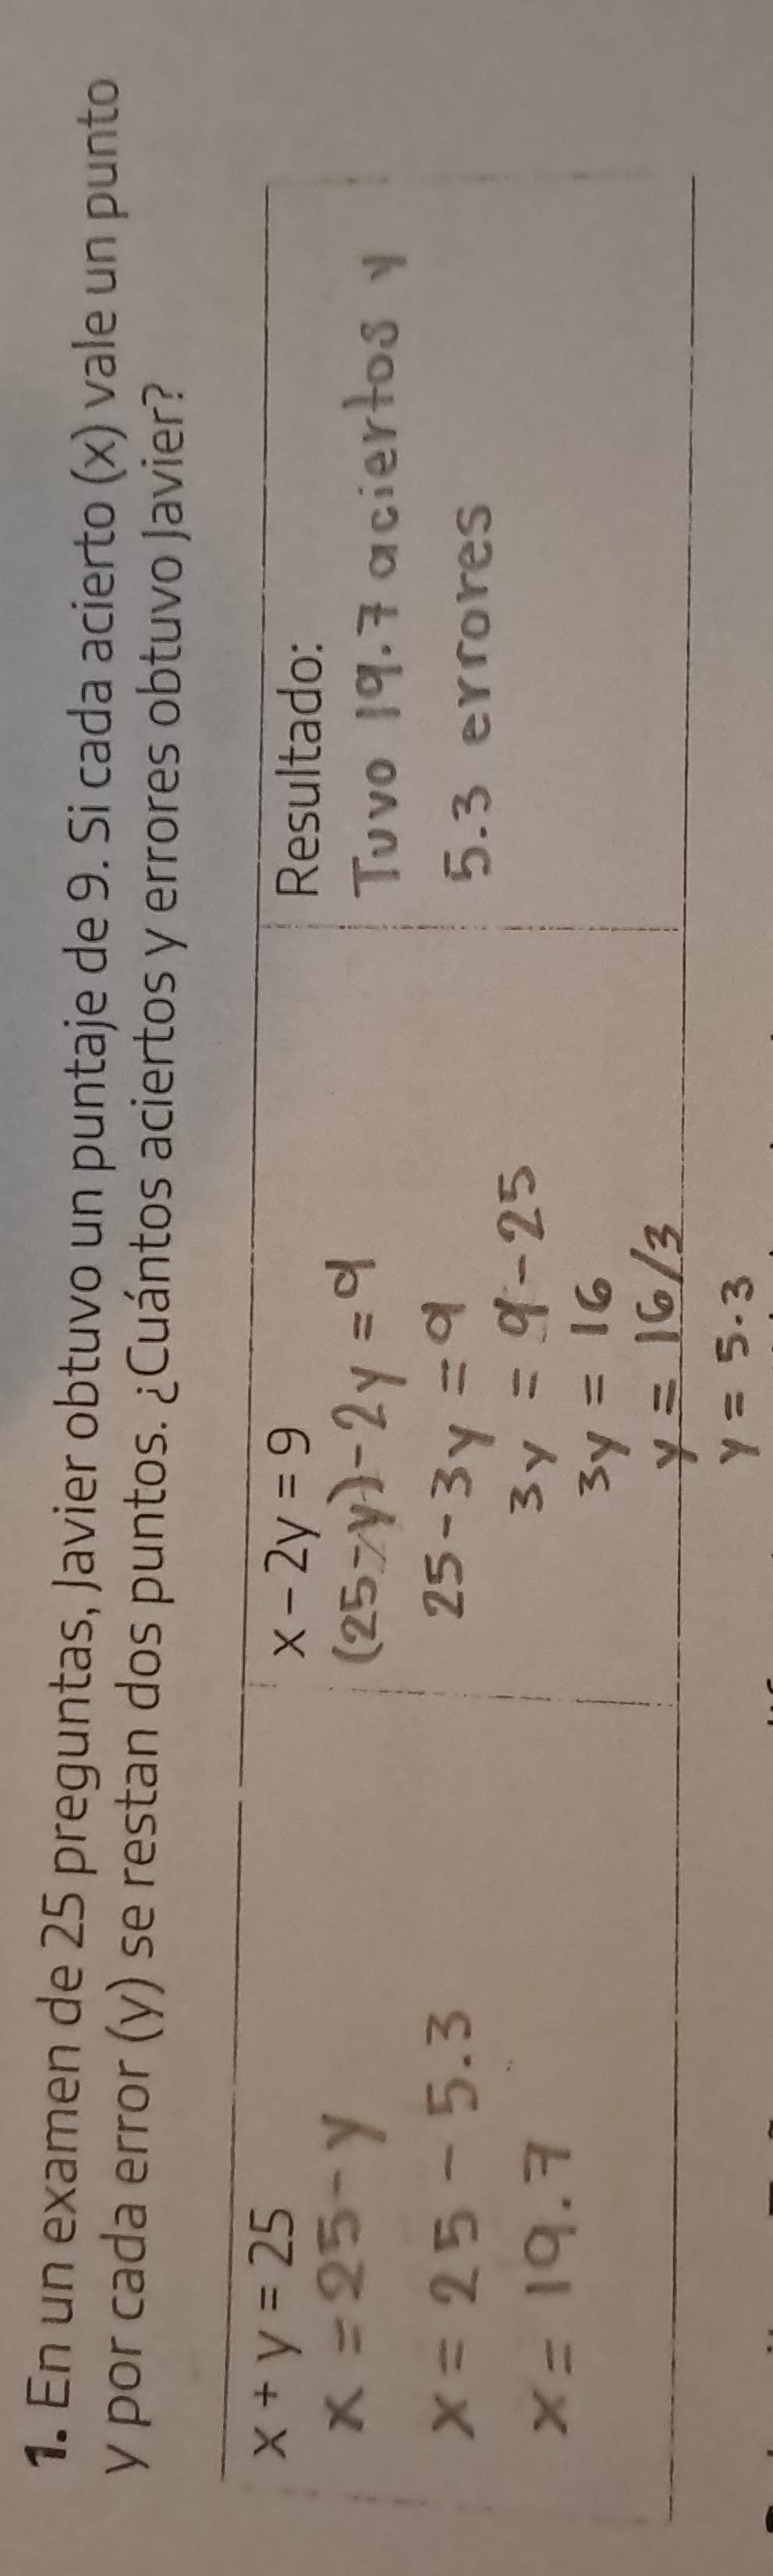 1. En un examen de 25 preguntas, Javier obtuvo un puntaje de 9. Si cada acierto (x) vale un punto
y por cada error (y) se restan dos puntos. ¿Cuántos aciertos y errores obtuvo Javier?
x + y = 25
x = 25 - y
x = 25 - 5.3
x = 19.7
x – 2y = 9
(25-y)-2y = 9
25-3y = 9
3y = 9-25
3y = 16
y = 16/3
y = 5.3
Resultado:
Tuvo 19.7 aciertos y
5.3 errores